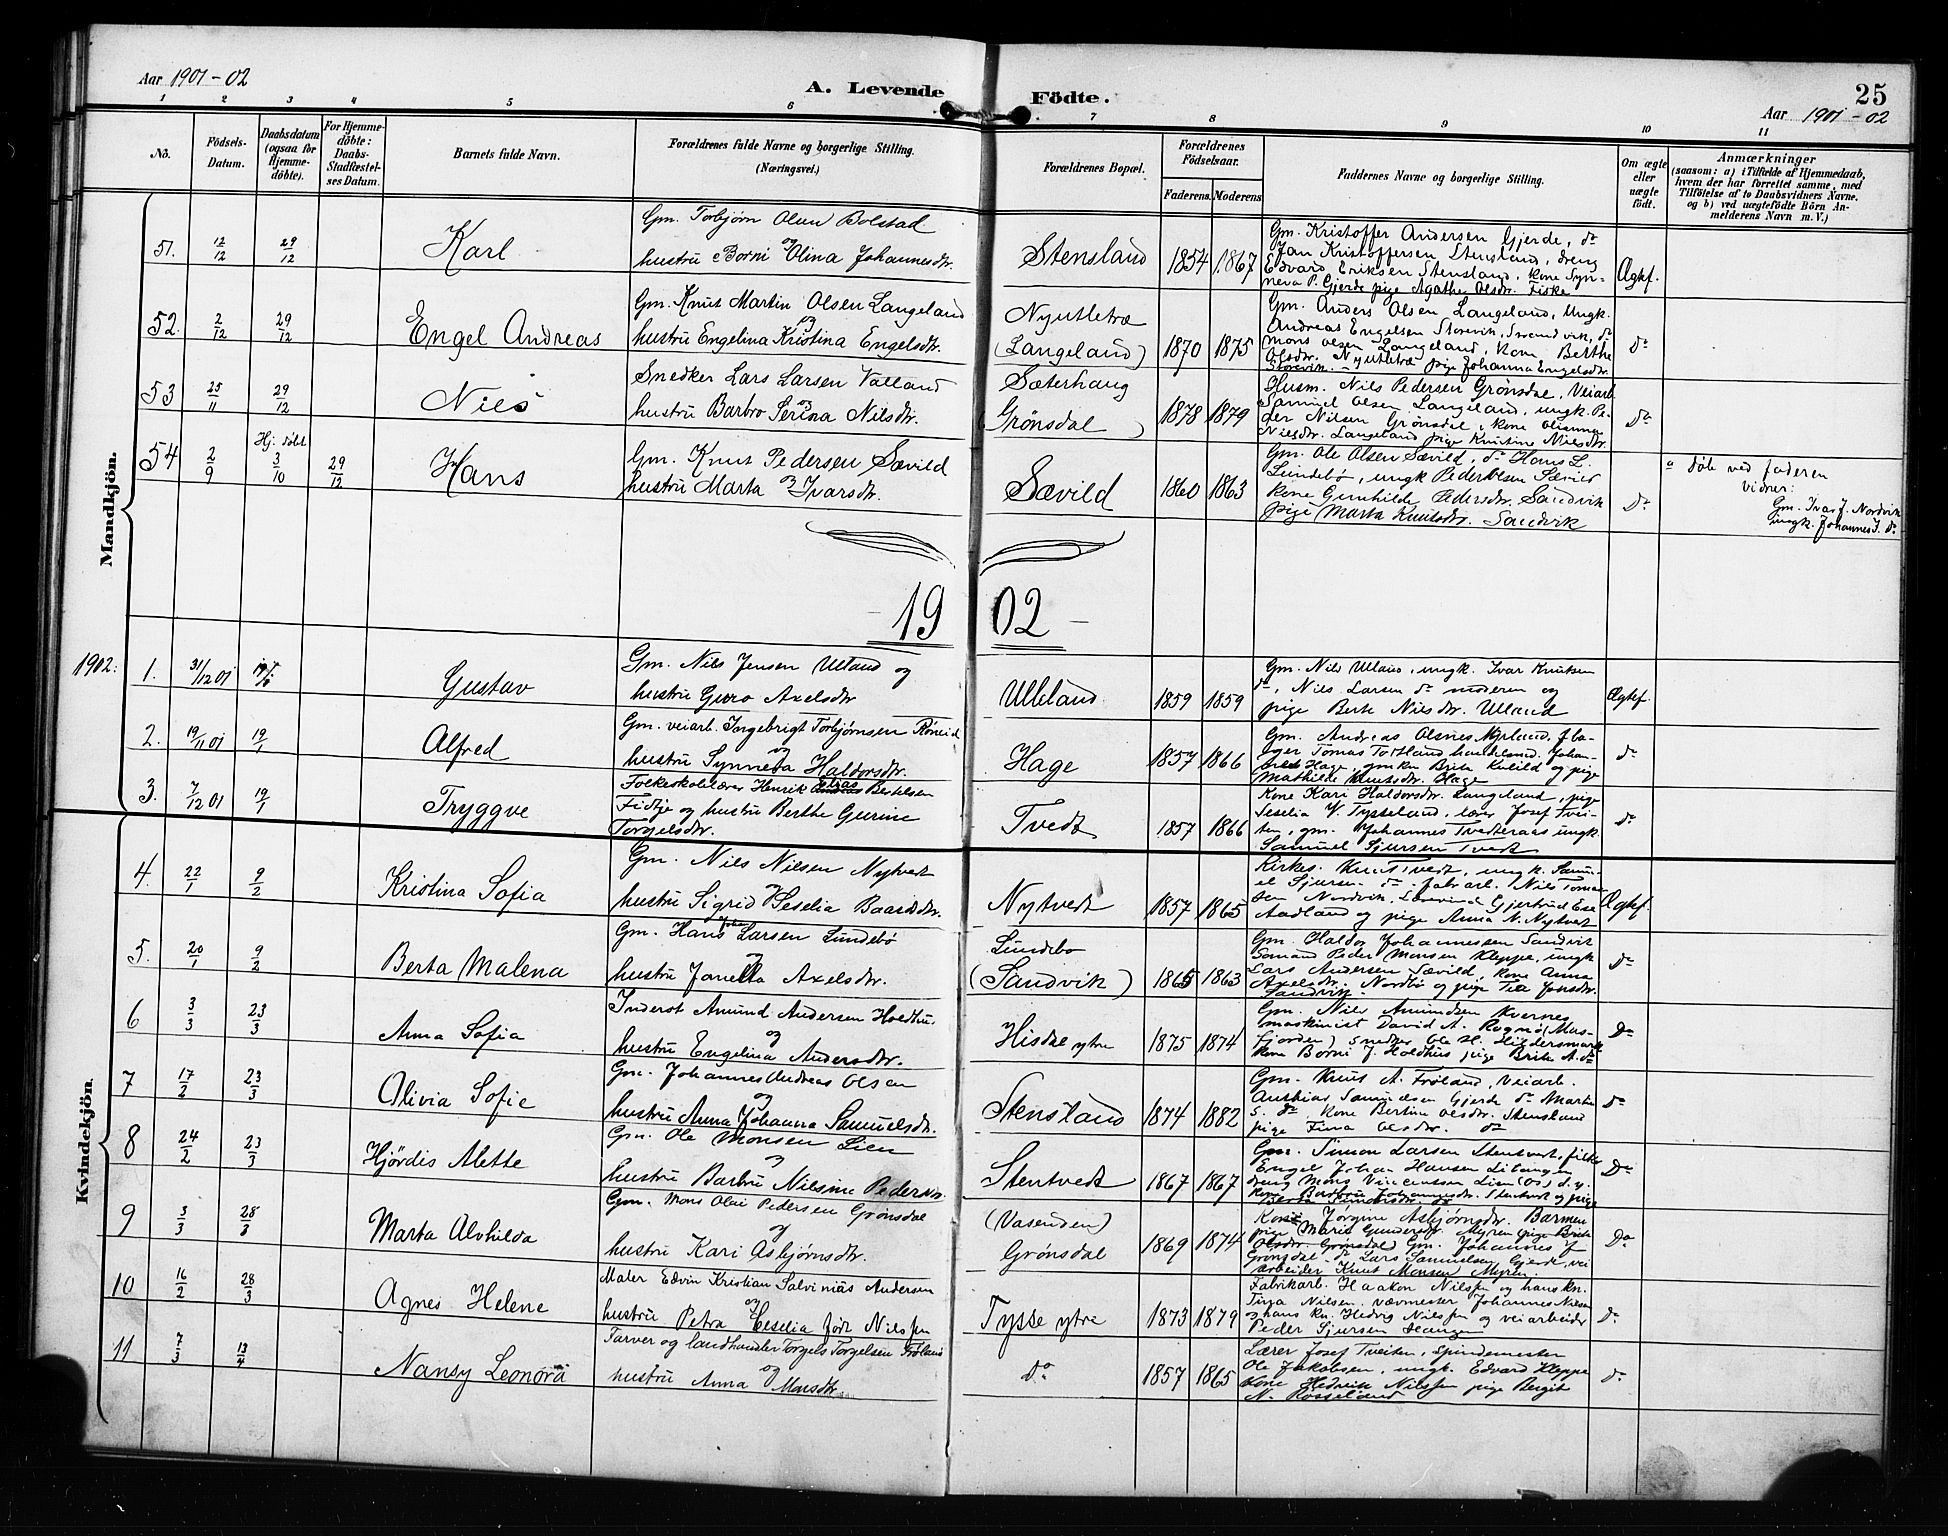 Aar 1901-02
A. Levende Födte.
25
Aar 1901-02
1 2 3 4 5 6 7 8 9 10 11
No.
Födsels-Datum.
Daabsdatum (ogsaa for Hjemme-döbte).
For Hjemme-döbte: Daabs-Stadfæstel-ses Datum.
Barnets fulde Navn.
Forældrenes fulde Navne og borgerlige Stilling. (Næringsvei.)
Forældrenes Bopæl.
Forældrenes Födselsaar.
Faderens. Moderens
Faddernes Navne og borgerlige Stilling.
Om ægte eller uægte födt.
Anmærkninger
(saasom: a) i Tilfælde af Hjemmedaab,
hvem der har forrettet samme, med
Tilföielse af to Daabsvidners Navne.
og b) ved uægtefödte Börn An-
melderens Navn m. V.)
Mandkjön.
51. 12/12 29/12 Karl
Gm. Torbjørn Olsen Bolstad og
hustru Borni Olina Johannesdtr.
Stensland 1854 1867
Gm. Kristoffer Andersen Gjerde, do
Jan Kristoffersen Stensland, dreng
Edvard Eriksen Stensland, kone Syn-
neva P. Gjerde pige Agathe Olsdtr. Fiske
Ægtef.
52. 2/12 29/12 Engel Andreas
Gm. Knut Martin Olsen Langeland og
hustru Engelina Kristina Engelsdtr.
Nyutletræ
(Langeland) 1870 1875
Gm. Anders Olsen Langeland, ungk.
Andreas Engelsen Storevik, Strandvik, do
Mons Olsen Langeland, kone Berthe
Olsdtr. Nyutletræ pige Johanna Engelsdtr.
Storevik.
do
53 25/11 29/12 Nils
Snedker Lars Larsen Valland og
hustru Barbro Serina Nilsdtr.
Sæterhaug
Grønsdal) 1878 1879
Husm. Nils Pedersen Grønsdal, Veiarb.
Samuel Olsen Langeland, ungk. Pe-
der Nilsen Grønsdal, kone Olianna
Nilsdtr. Langeland pige Kristine Nilsdtr.
do
54 2/9 Hj. døbt 3/10 29/12 Hans
Gm. Knut Pedersen Sævild og
hustru Marta Ivarsdtr.
Sævild 1860 1863
Gm. Ole Olsen Sævild, do Hans L.
Lundebø, ungk Peder Olsen Sævild
kone Gunhilde Pedersdtr. Sandvik
pige Marta Knutsdtr. Sandvik
do
døbt ved faderen
vidner:
Gm. Ivar J. Nordvik
ungk. Johannes I. do
1902
1902:
1. 31/12 01 Gustav
Gm. Nils Jensen Ulland og
hustru Guro Axelsdtr
Ulleland 1859 1859
Gm. Nils Ulland, ungk. Ivar Knutsen
do, Nils Larsen do moderen og
pige Berte Nilsdtr. Ulland
Ægtef.
2. 19/11 01 19/1 Alfred
Gm. veiarb. Ingebrigt Torbjørnsen Røneid og
hustru Synneva Haldorsdtr.
Hage 1857 1866
Gm. Andreas Olsnes Nyland,
Tomas Totland handelsmd. Johan-
nes Hage, gmkn Brita Kvild og pige
Mathilde Knutsdtr. Hage
do
3. 7/12 01 19/1 Tryggve
Folkeskolelærer Henrik Elias Bertelsen
Fidtje og hustru Berthe Gurine
Torgelsdtr.
Tvedt 1857 1866
Kone Kari Haldorsdtr. Langeland, pige
Seselia V. Tysseland, lærer Josef Tvei-
ten, gm. Johannes Tvedteraas ungk.
Samuel Sjursen Tvedt
do
Kvindekjön.
4. 22/1 9/2 Kristina Sofia
Gm. Nils Nilsen Nytvedt og
hustru Sigrid Seselia Baardsdtr.
Nytvedt 1857 1865
Kirkes. Knut Tvedt, ungk. Samu-
el Sjursen do, fabr.arb. Nils Tomas-
sen Nordvik, Gjertrud
Aadland og pige Anna N. Nytvedt
Ægtef.
5. 20/1 9/2 Berta Malena
Gm. Hans Larsen Lundebø og
hustru Janetta Axelsdtr.
Lundebø
(Sandvik) 1865 1863
Gm. Haldor Johannessen Sandvik
Sømand Peder Monsen Kleppe, ungk
Lars Andersen Sævild, kone Anna
Axelsdtr. Nordbø og pige Tea Jensdtr.
Sandvik.
do
6 3/3 23/3 Anna Sofia
Inderst Amund Andersen Holdhus og
hustru Engelina Andersdtr.
Hisdal ytre 1875 1874
Gm. Nils Amundsen Kvernes
maskinist David A. Rognø (Maus-
fjorden) Snedker Ole H. Hildersmark
kone Borni J. Holdhus pige Brita A. do
Do
7 17/2 23/3 Alivia Sofie
Gm. Johannes Andreas Olsen og
hustru Anna Johanna Samuelsdtr.
Stensland 1874 1882
Gm. Knut A. Frøland, Veiarb.
Samuelsen Gjerde do Martin
S. do, kone Bertine Olsdtr. Stensland
pige Fina Olsdtr. do
do
8 24/2 23/3 Hjørdis Alette
Gm. Ole Monsen Lien og
hustru Barbru Nilsine Pedersdtr.
Stentvedt 1867 1867
Gm. Simon Larsen Stentvedt,
Engel Johan Hansen
dreng Mons Vincentsen Lien (Os) d.y.
kone Barbru Johannesdtr. Stentvedt og pige
Berta Simonsdtr. do
Do
9 3/3 28/3 Marta Alvhilda
Gm. Mons Olai Pedersen Grønsdal og
hustru Kari Asbjørnsdtr.
(Vasenden)
Grønsdal 1869 1874
Kone Jørgine Asbjørnsdtr. Barmen
pige Marie Gundersdtr. Myren pige Brita
Olsdtr. Grønsdal, Gm. Johannes J
Grønsdal, do Lars Samuelsen Gjerde, vei
arbeider Knut Monsen Myren
Do
10 16/2 28/3 Agnes Helene
Maler Edvin Kristian Salvinias Andersen og
hustru Petra Seselia født Nilssen
Tysse ytre 1873 1879
Fabrikarb. Haakon Nilssen og hans kn.
Tina Nilsen, vævmester Johannes Nilsen
og hans kn. Hedvig Nilssen og veiarbeider
Peder Sjursen Haugen
do
11 7/3 13/4 Nansy Leonora
Farver og landhandler Torgels Torgelsen Frøland og
hustru Anna Monsdtr.
do 1857 1865
Lærer Josef Tveiten, Spindemester
Ole Jakobsen, ungk. Edvard Kleppe
Kone Hedvik Nilssen pige Bergit
N. Rosseland
do